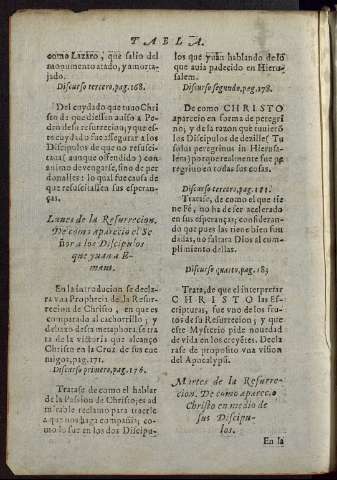 TABLA.
como Lazaro, que salio del
monumento atado, y amorta-
jado.
Discurso tercero, pag. 168.
Del cuydado que tuuo Chri
sto dã que diessen auiso a Pe-
dro desu resurrecion; y que es-
te cuydado fue assegurar a los
Discipulos de que no resusci-
taua (aunque offendido) con
animo de vengarse, sino de per
donalles: lo qual fue causa de
que resuscitassen sus esperan-
ças.
Lunes de la Resurrecion.
De como aparecio el Se
ñor a los Discipulos
que yuan a E-
maus.
En la introducion se decla-
ra vna Prophecia de la Resur-
recion de Christo, en que es
comparado al cachorrillo; y
debaxo desta metaphora, se tra
ta de la victoria que alcanço
Christo en la Cruz de sus ene
migos, pag. 171.
Discurso primero, pag. 176.
Tratase de como el hablar
de la Passion de Christo, es ad
mirable reclamo para traerle
a que nos haga compañia; co-
mo lo fue en los dos Discipu-
los que yuan hablando de lo
que auia padecido en Hieru-
salem.
Discurso segundo, pag. 178.
De como CHRISTO
aparecio en forma de peregri
no, y de la razon que tuuierõ
los Discipulos de dezille (Tu
solus peregrinus in Hierusa-
lem) porque realmente fue pe
regrino en todas sus cosas.
Discurso tercero, pag. 181.
Tratase, de como el que tie-
ne Fè, no ha de ser acelerado
en sus esperanças; consideran-
do que pues las tiene bien fun
dadas, no faltara Dios al cum-
plimiento dellas.
Discurso quarto, pag. 183
Trata, de que el interpretar
CHRISTO las Es-
cripturas, fue vno de los fru-
tos de su Resurrecion; y que
este Mysterio pide nouedad
de vida en los creyẽtes. Decla
rase de proposito vna vision
del Apocalypsi.
Martes de la Resurre-
cion. De como aparecio
Christo en medio de
sus Discipu-
los.
En la